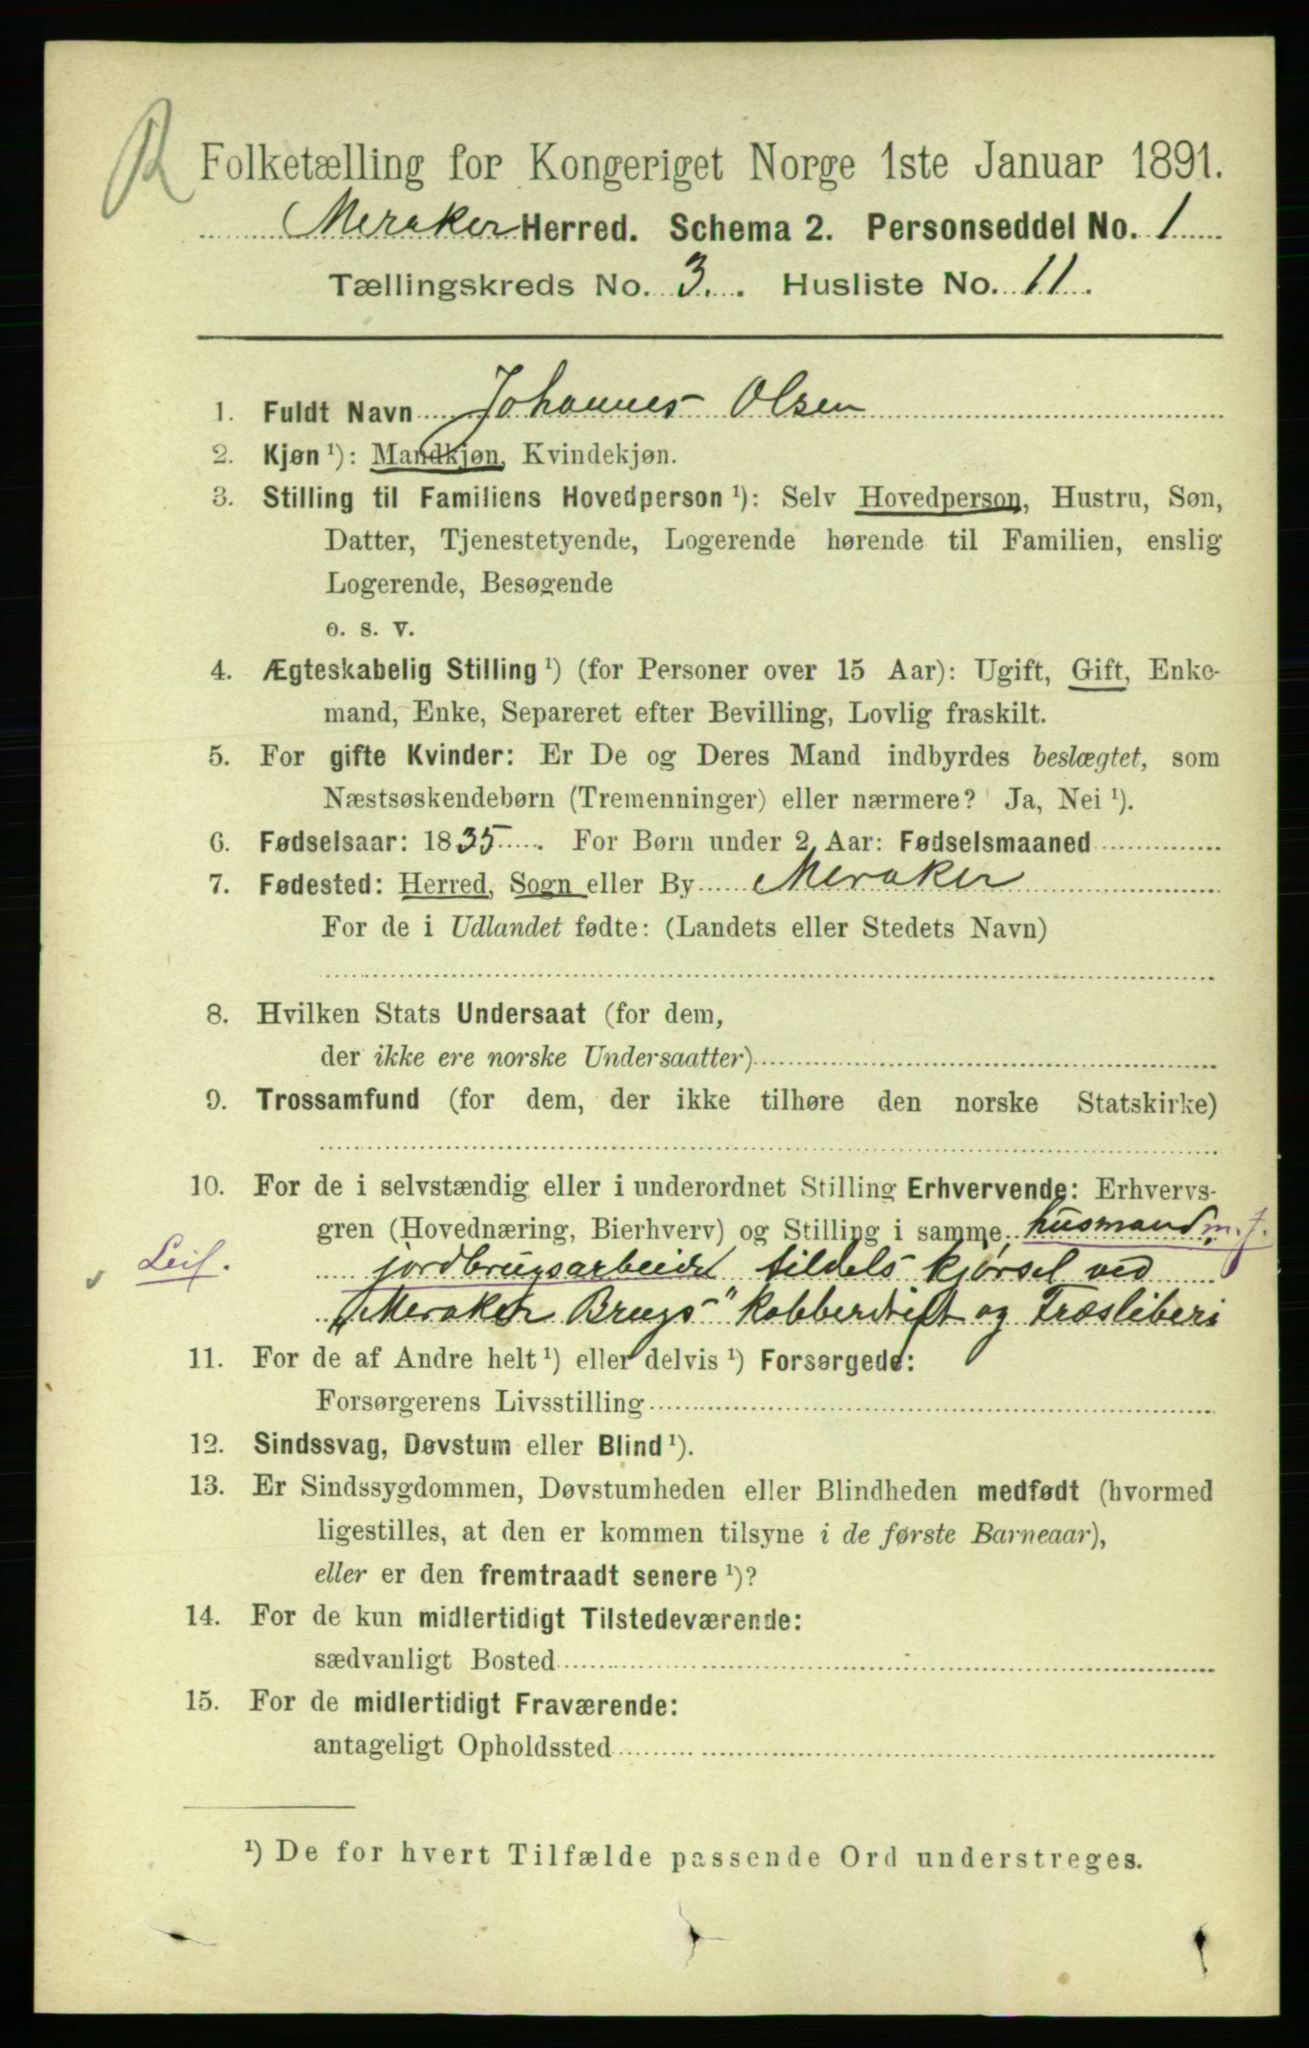 R
Folketælling for Kongeriget Norge 1ste Januar 1891.
Meraker Herred. Schema 2. Personseddel No. 1
Tællingskreds No. 3. Husliste No. 11.
1. Fuldt Navn Johannes Olsen
2. Kjøn ¹): Mandkjøn, Kvindekjøn.
3. Stilling til Familiens Hovedperson ¹): Selv Hovedperson, Hustru, Søn,
Datter, Tjenestetyende, Logerende hørende til Familien, enslig
Logerende, Besøgende
o. s. v.
4. Ægteskabelig Stilling ¹) (for Personer over 15 Aar): Ugift, Gift, Enke-
mand, Enke, Separeret efter Bevilling, Lovlig fraskilt.
5. For gifte Kvinder: Er De og Deres Mand indbyrdes beslægtet, som
Næstsøskendebørn (Tremenninger) eller nærmere? Ja, Nei ¹).
6. Fødselsaar: 1835. For Børn under 2 Aar: Fødselsmaaned
7. Fødested: Herred, Sogn eller By Meraker
For de i Udlandet fødte: (Landets eller Stedets Navn)
8. Hvilken Stats Undersaat (for dem,
der ikke ere norske Undersaatter)
9. Trossamfund (for dem, der ikke tilhøre den norske Statskirke)
10. For de i selvstændig eller i underordnet Stilling Erhvervende: Erhvervs-
gren (Hovednæring, Bierhverv) og Stilling i samme husmand m. j.
Leil. jordbrugsarbeide tildels kjørsel ved
"Meraker Brugs" kobberdrift og Træsliberi
11. For de af Andre helt ¹) eller delvis ¹) Forsørgede:
Forsørgerens Livsstilling
12. Sindssvag, Døvstum eller Blind ¹).
13. Er Sindssygdommen, Døvstumheden eller Blindheden medfødt (hvormed
ligestilles, at den er kommen tilsyne i de første Barneaar),
eller er den fremtraadt senere ¹)?
14. For de kun midlertidigt Tilstedeværende:
sædvanligt Bosted
15. For de midlertidigt Fraværende:
antageligt Opholdssted
¹) De for hvert Tilfælde passende Ord understreges.